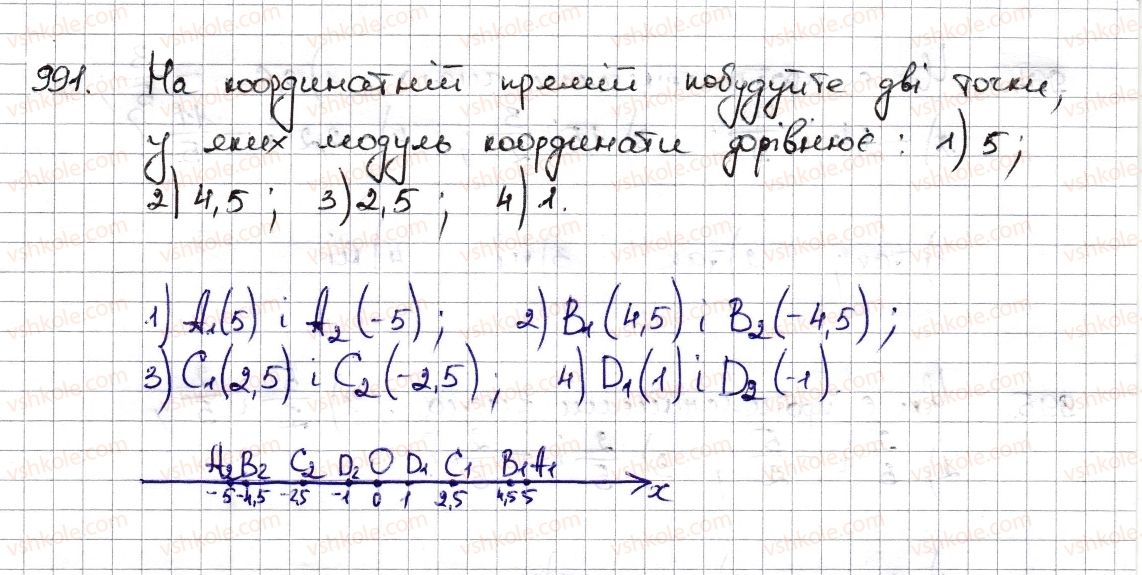 991. На координатній прямій побудуйте дві точки,
у яких модуль координати дорівнює: 1) 5;
2) 4,5; 3) 2,5; 4) 1.
1) A₁(5) і A₂(-5); 2) B₁(4,5) і B₂(-4,5);
3) C₁(2,5) і C₂(-2,5); 4) D₁(1) і D₂(-1).
A₂ B₂ C₂ D₂ O D₁ C₁ B₁ A₁
-5 -4,5 -2,5 -1 0 1 2,5 4,5 5 x